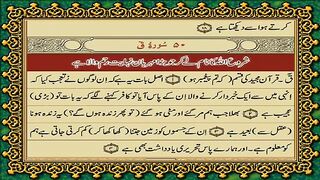 کرتے ہو اسے دیکھتا ہے
۵۰ سورۃ ق
شروع اللہ کا نام لے کر جو بڑا مہربان نہایت رحم والا ہے
ق۔ قرآن مجید کی قسم (کہ تم پیغمبر ہو) اصل بات یہ ہے کہ ان لوگوں نے تعجب کیا کہ
انہی میں سے ایک خبردار کرنے والا ان کے پاس آیا تو کافر کہنے لگے کہ یہ بات تو (بڑی)
عجیب ہے بھلا جب ہم مر گئے اور مٹی ہو گئے (تو پھر زندہ ہوں گے؟) یہ زندہ ہونا
(عقل سے) بعید ہے ان کے جسموں کو زمین جتنا (کھا کھا کر) کم کرتی جاتی ہے ہم
کو معلوم ہے۔ اور ہمارے پاس تحریری یادداشت بھی ہے